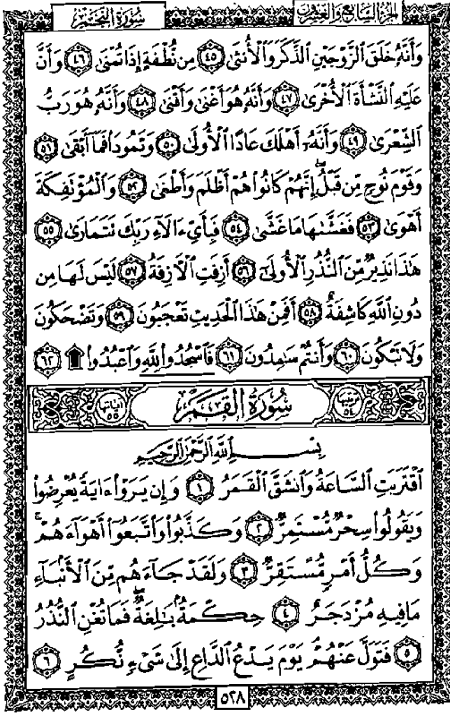 سُورَةُ النَّجْمِ الجزء السابع والعشرون
وَأَنَّهُ خَلَقَ ٱلزَّوْجَيْنِ ٱلذَّكَرَ وَٱلْأُنثَىٰ ٤٥ مِن نُّطْفَةٍ إِذَا تُمْنَىٰ ٤٦ وَأَنَّ
عَلَيْهِ ٱلنَّشْأَةَ ٱلْأُخْرَىٰ ٤٧ وَأَنَّهُۥ هُوَ أَغْنَىٰ وَأَقْنَىٰ ٤٨ وَأَنَّهُۥ هُوَ رَبُّ
ٱلشِّعْرَىٰ ٤٩ وَأَنَّهُۥٓ أَهْلَكَ عَادًا ٱلْأُولَىٰ ٥٠ وَثَمُودَا۟ فَمَآ أَبْقَىٰ ٥١
وَقَوْمَ نُوحٍ مِّن قَبْلُ ۖ إِنَّهُمْ كَانُوا۟ هُمْ أَظْلَمَ وَأَطْغَىٰ ٥٢ وَٱلْمُؤْتَفِكَةَ
أَهْوَىٰ ٥٣ فَغَشَّىٰهَا مَا غَشَّىٰ ٥٤ فَبِأَىِّ ءَالَآءِ رَبِّكَ تَتَمَارَىٰ ٥٥
هَٰذَا نَذِيرٌ مِّنَ ٱلنُّذُرِ ٱلْأُولَىٰٓ ٥٦ أَزِفَتِ ٱلْءَازِفَةُ ٥٧ لَيْسَ لَهَا مِن
دُونِ ٱللَّهِ كَاشِفَةٌ ٥٨ أَفَمِنْ هَٰذَا ٱلْحَدِيثِ تَعْجَبُونَ ٥٩ وَتَضْحَكُونَ
وَلَا تَبْكُونَ ٦٠ وَأَنتُمْ سَٰمِدُونَ ٦١ فَٱسْجُدُوا۟ لِلَّهِ وَٱعْبُدُوا۟ ۩ ٦٢
ترتيبها ٥٤ سُورَةُ القَمَرِ آياتها ٥٥
بِسْمِ ٱللَّهِ ٱلرَّحْمَٰنِ ٱلرَّحِيمِ
ٱقْتَرَبَتِ ٱلسَّاعَةُ وَٱنشَقَّ ٱلْقَمَرُ ١ وَإِن يَرَوْا۟ ءَايَةً يُعْرِضُوا۟
وَيَقُولُوا۟ سِحْرٌ مُّسْتَمِرٌّ ٢ وَكَذَّبُوا۟ وَٱتَّبَعُوٓا۟ أَهْوَآءَهُمْ ۚ
وَكُلُّ أَمْرٍ مُّسْتَقِرٌّ ٣ وَلَقَدْ جَآءَهُم مِّنَ ٱلْأَنۢبَآءِ
مَا فِيهِ مُزْدَجَرٌ ٤ حِكْمَةٌۢ بَٰلِغَةٌ ۖ فَمَا تُغْنِ ٱلنُّذُرُ
٥ فَتَوَلَّ عَنْهُمْ ۘ يَوْمَ يَدْعُ ٱلدَّاعِ إِلَىٰ شَىْءٍ نُّكُرٍ ٦
٥٢٨